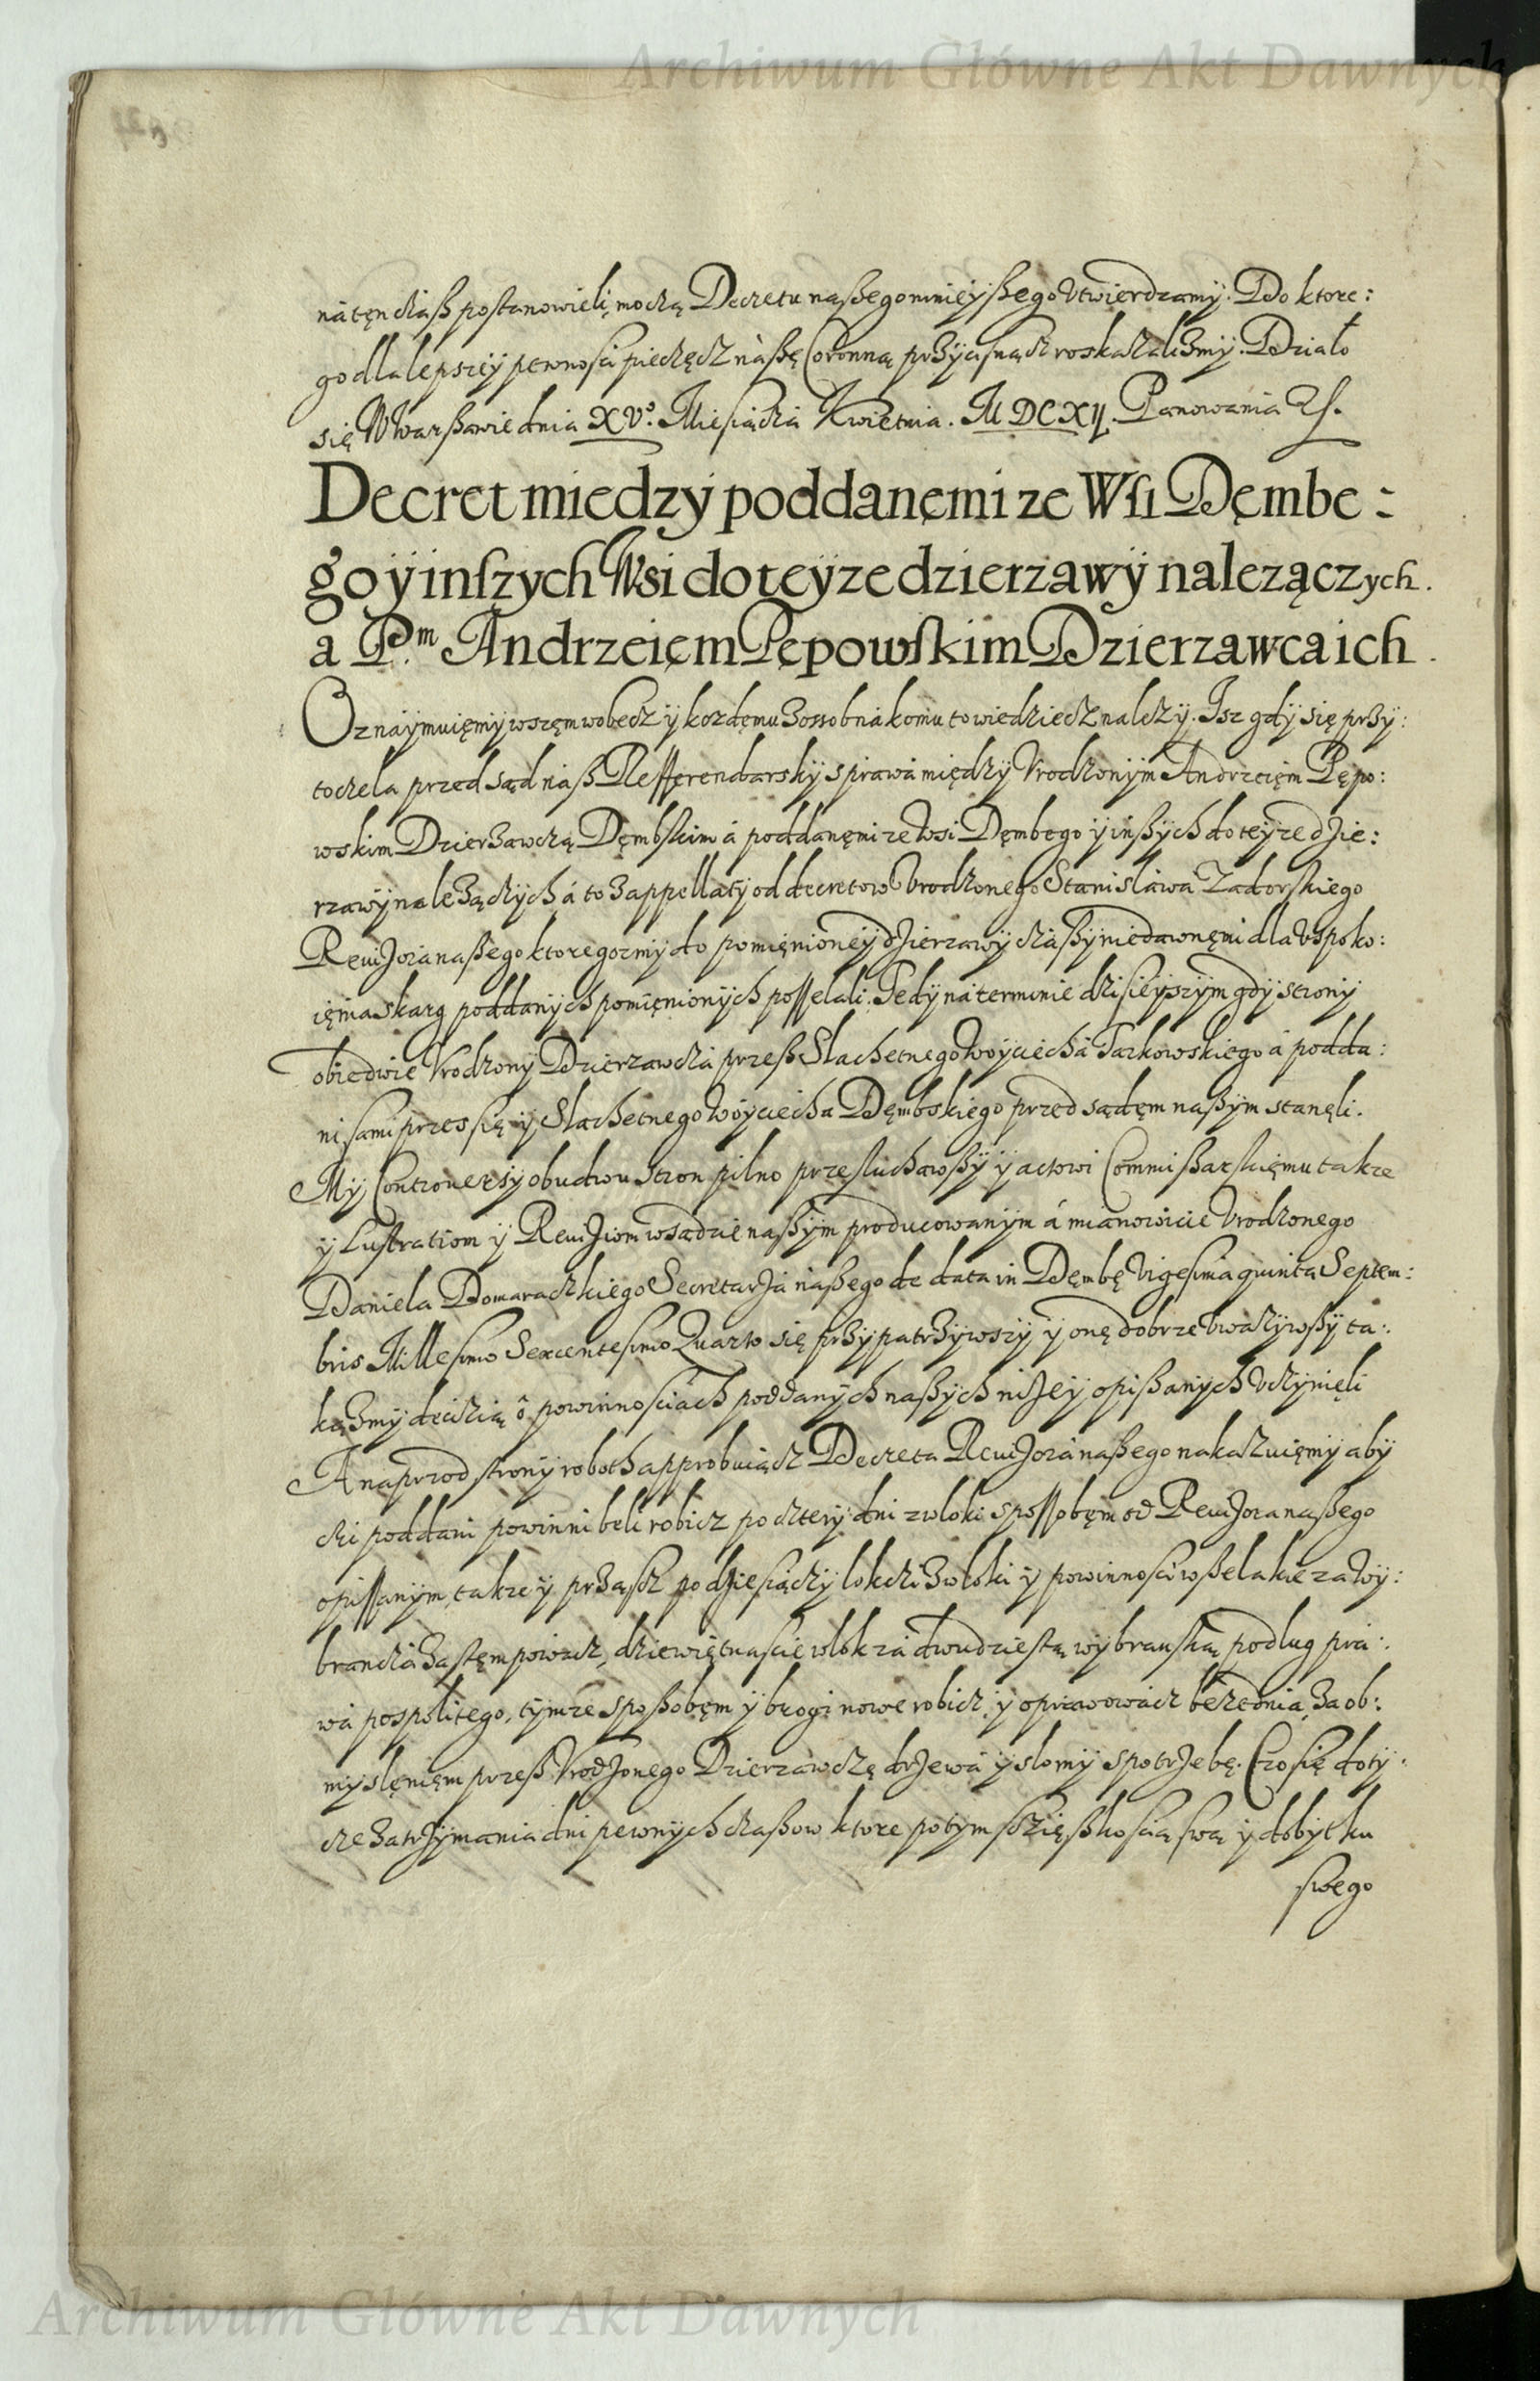 Archiwum Główne Akt Dawnych
nà tęn cżàß postanowieli, mocżą Decretu naßego mnieÿßego Vtwierdzamÿ. Do ktore:
go dla lepszeÿ pewnosci piecżęcz nàßę Coronną prżÿcisnącz roskazalizmÿ. Działo
się W Warßawie dnia XV.º Miesiącża Kwietnia. M DC XII. Panowania Zs.
Decret miedzÿ poddanęmi ze Wsi Dęmbe :
go ÿ inszych Wsi do teÿze dzierzawÿ nalezączych.
a P.m Andrzeięm Pępowskim Dzierzawca ich.
Oznàÿmuięmÿ wszęm wobecz ÿ kozdęmu zossobnà komu to wiedziecz nalezÿ. Isz gdÿ się przÿ:
tocżela przed sąd nàß Refferendarskÿ sprawà międzÿ Vrodzonÿm Andrzeięm Pępo:
wskim Dzierzawcżą Dęmbskim à poddanęmi ze Wsi Dęmbego ÿ inßÿch do teÿze dzie:
rzawÿ nalezącżÿch à to z appellatÿ od decretow Vrodzonego Stanisławà Zadorskiego
Rewizorà naßego ktoregozmÿ do pomięnioneÿ dzierzawÿ cżàßÿ niedawnęmi dla Vspoko:
ięnia skarg poddanÿch pomięnionÿch possełali. Tedÿ nà terminie dzisieÿszÿm gdÿ stronÿ
obiedwie Vrodzonÿ Dzierzawcżà przeß Slachetnego Woÿciechà Tarkowskiego à podda:
ni sami przes się ÿ Slachetnego Woÿciecha Dęmbskiego przed sądęm naßÿm stanęli.
Mÿ Controuersÿ obudwu stron pilno przesluchawßÿ ÿ actowi Commißarskięmu takze
ÿ Lustratiom ÿ Rewiziom w sądzie naßÿm producowanÿm à mianowicie Vrodzonego
Daniela Domaradzkiego Secretarzà nàßego de data in Dęmbę Vigesima quinta Septem:
bris Millesimo Sexcentesimo Quarto się przÿpatrzÿwszÿ ÿ onę dobrze Vwazÿwßÿ ta:
kązmÿ decizią o powinnosciach poddanÿch naßÿch nizeÿ opißanÿch Vcżÿnięli
A naprzod stronÿ roboth approbuiącz Decreta Rewizorà naßego nakazuięmÿ abÿ
ci poddani powinni beli robicz po czterÿ dni z wloki sposobęm od Rewizora naßego
opissanÿm, takze ÿ prząsz po dziesiącżÿ lokci z wloki ÿ powinnosci wßelakie za wÿ:
brancżà zastęmpowacz, dziewiętnascie wlok zà dwudziestą wÿbranską podlug prà:
wà pospolitego, tÿmze sposobęm ÿ brogi nowe robicz, ÿ oprawowacz beze dnia, za ob:
mÿslęnięm przeß Vrodzonego Dzierzawcżę drzewà ÿ slomÿ s potrzebę. Czo się dotÿ:
cze zatrzÿmania dni pewnÿch cżaßow ktore potÿm s cięßkoscią swą ÿ dobÿtku
swego
Archiwum Główne Akt Dawnych